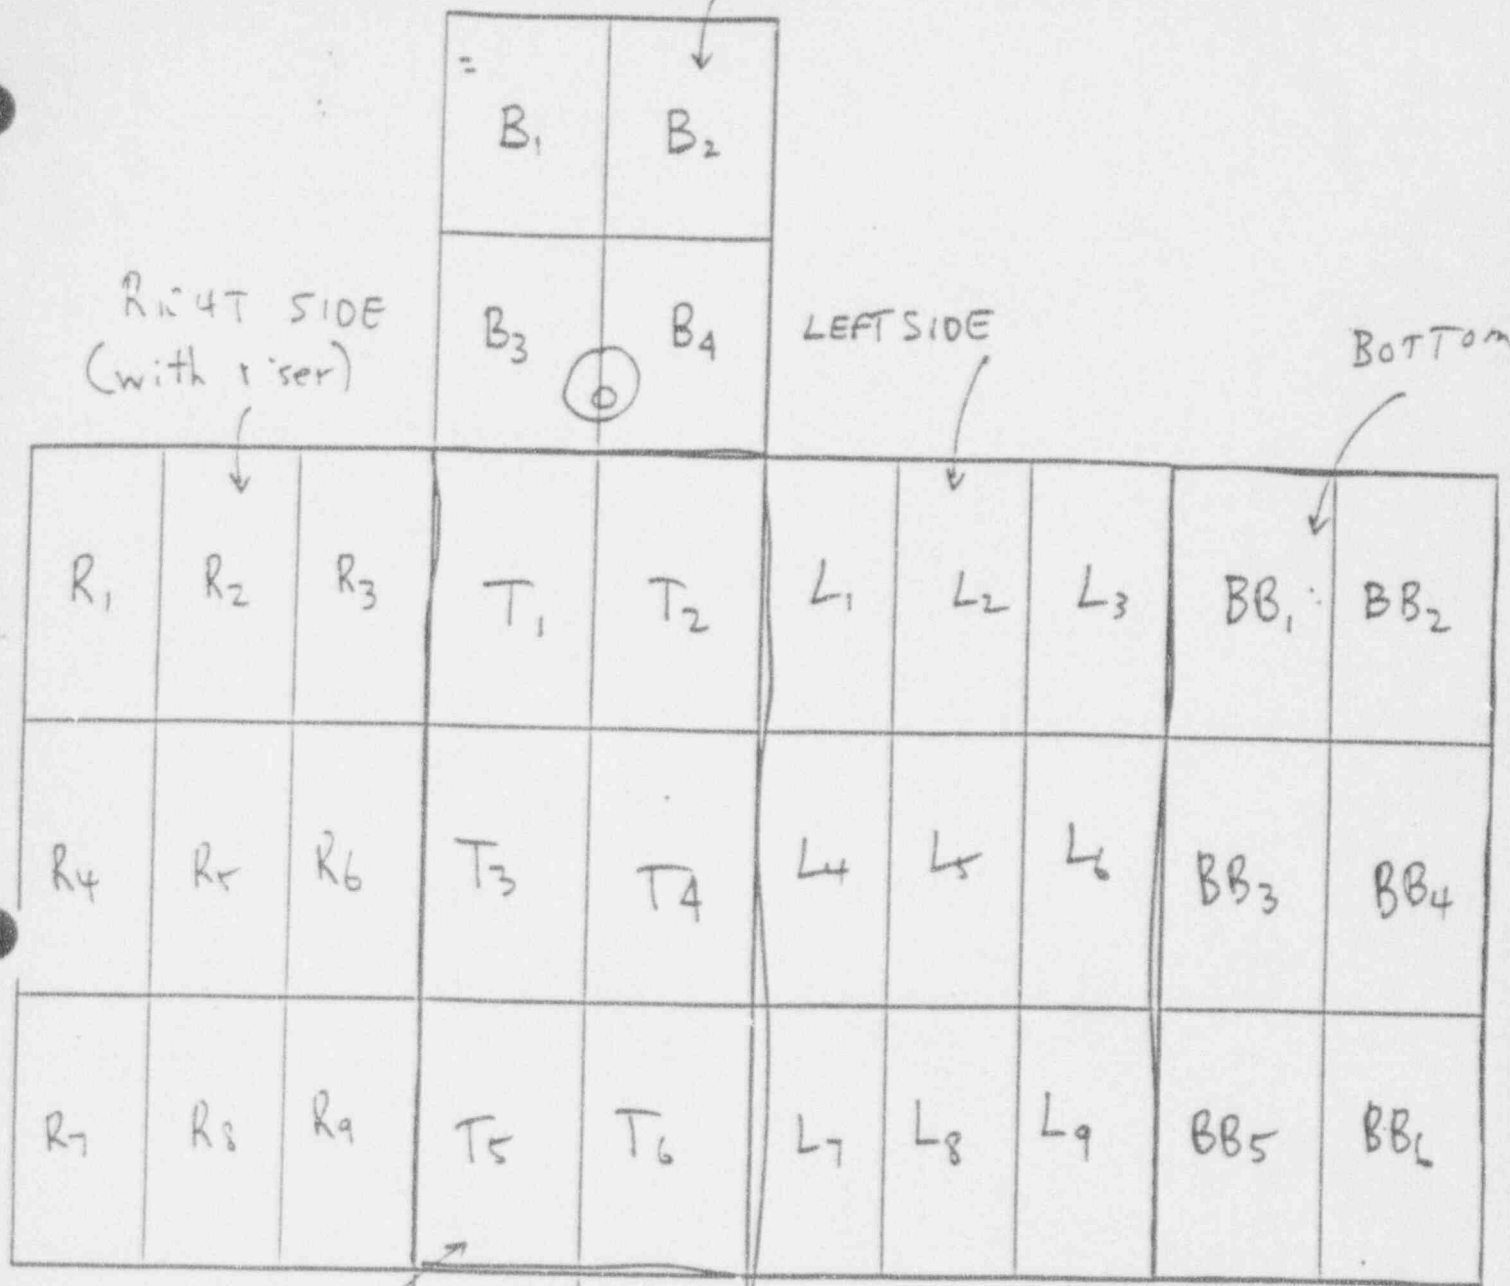 =
B₁ B₂
B₃ B₄
RIGHT SIDE
(with riser)
LEFT SIDE
BOTTOM
R₁ R₂ R₃ T₁ T₂ L₁ L₂ L₃ BB₁ BB₂
R₄ R₅ R₆ T₃ T₄ L₄ L₅ L₆ BB₃ BB₄
R₇ R₈ R₉ T₅ T₆ L₇ L₈ L₉ BB₅ BB₆